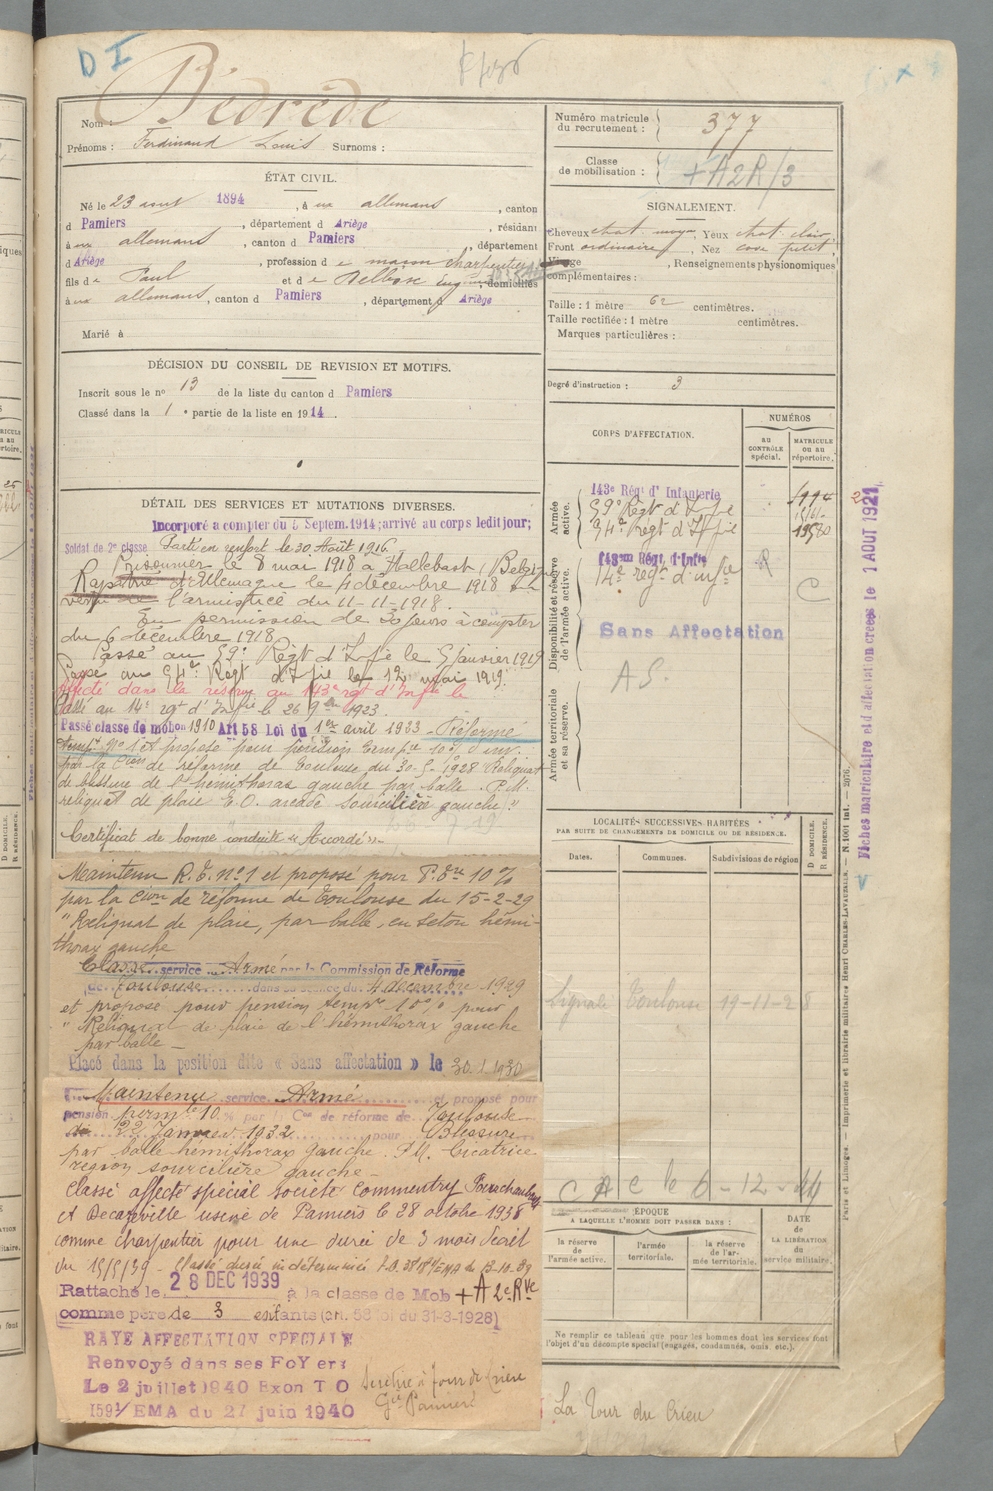 D I
Bédrède
Nom :
Prénoms : Ferdinand Louis Surnoms :
ÉTAT CIVIL.
Né le 23 août 1894, à ux allemans, canton
d Pamiers, département d Ariège, résidant
à ux allemans, canton d Pamiers, département
d Ariège, profession d e maçon charpentier
fils d e Paul et d e Delbose domiciliés
à ux allemans, canton d Pamiers, département d Ariège
Marié à
DÉCISION DU CONSEIL DE REVISION ET MOTIFS.
Inscrit sous le no 13 de la liste du canton d Pamiers
Classé dans la 1 e partie de la liste en 1914.
DÉTAIL DES SERVICES ET MUTATIONS DIVERSES.
Incorporé a compter du 5 Septem. 1914; arrivé au corps ledit jour;
Soldat de 2e classe Parti en renfort le 30 Août 1916
Prisonnier le 8 mai 1918 à Hallebast (Belgique
Rapatrié d'Allemagne le 4 décembre 1918 en
vertu de l'armistice du 11-11-1918.
En permission de 30 jours à compter
du 6 décembre 1918
Passé au 59e Régt d'Infie le 5 Janvier 1919
Passé au 94e Régt d'Infie le 12 mai 1919.
Affecté dans la réserve au 143e rgt d'Infie le
Passé au 14e rgt d'Infie le 26 9bre 1923
Passé classe de mobon 1910 Art 58 Loi du 1er avril 1933 - Réformé
temp. No 1 et proposé pour pension tempre 10% d'inv.
par la Cion de réforme de Toulouse du 30-5-1928 Reliquat
de blessure de l'hémithorax gauche par balle. P.M.
reliquat de plaie E.O. arcade sourcilière gauche."
Certificat de bonne conduite "Accordé"
Maintenu R.T. no 1 et proposé pour P. Tre 10%
par la Cion de réforme de Toulouse du 15-2-29
"Reliquat de plaie, par balle, en seton hémi-
thorax gauche
Classé service Armé par la Commission de Réforme
de Toulouse dans sa séance du 4 décembre 1929
et proposé pour pension tempre 10% pour
"Reliquat de plaie de l'hémithorax gauche
par balle -
Placé dans la position dite « Sans affectation » le 30.1.1930
Maintenu service Armé et proposé pour
pension permte 10 % par la Con de réforme de Toulouse
du 22 Janvier 1932 pour Blessure
par balle hémithorax gauche. P.M. Cicatrice
région sourcilière gauche -
Classé affecté spécial société Commentry Fourchambault
et Decazeville usine de Pamiers le 28 octobre 1938
comme charpentier pour une durée de 3 mois Décret
du 15/5/39 - Classé durée indéterminée
Rattaché le 28 DEC 1939 à la classe de Mob + A 2e Rve
comme père de 3 enfants (art. 58 loi du 31-3-1928)
RAYE AFFECTATION SPECIALE
Renvoyé dans ses FoYers
Le 2 juillet 1940 Exon T O
1591/EMA du 27 juin 1940
Numéro matricule du recrutement : 377
Classe de mobilisation : + A2R/3
SIGNALEMENT.
Cheveux chat. moyen, Yeux chat. clair,
Front ordinaire, Nez cave petit,
Visage, Renseignements physionomiques
complémentaires :
Taille : 1 mètre 62 centimètres.
Taille rectifiée : 1 mètre centimètres.
Marques particulières :
Degré d'instruction : 3
CORPS D'AFFECTATION.
NUMÉROS
AU CONTRÔLE spécial.
MATRICULE OU AU répertoire.
Armée active.
143e Régt d'Infanterie
59e Régt d'Infie
94e Régt d'Infie
Disponibilité et réserve de l'armée active.
143eme Régt d'Infie R
14e régt d'infie
C
Sans Affectation
A S.
Armée territoriale et sa réserve.
LOCALITÉS SUCCESSIVES HABITÉES
PAR SUITE DE CHANGEMENTS DE DOMICILE OU DE RÉSIDENCE.
Dates.
Communes.
Subdivisions de région
D DOMICILE.
R RÉSIDENCE.
Signalé Toulouse 19-11-28
C A C le 6-12-44
ÉPOQUE
A LAQUELLE L'HOMME DOIT PASSER DANS :
la réserve de l'armée active.
l'armée territoriale.
la réserve de l'armée territoriale.
DATE de la LIBÉRATION du service militaire.
Ne remplir ce tableau que pour les hommes dont les services font
l'objet d'un décompte spécial (engagés, condamnés, omis, etc.).
La Tour du Crieu
Fiches matriculaire et d'affectation créées le 1 AOUT 1921
Paris et Limoges. — Imprimerie et librairie militaires Henri CHARLES-LAVAUZELLE. — N. 1001 Int. — 2076.